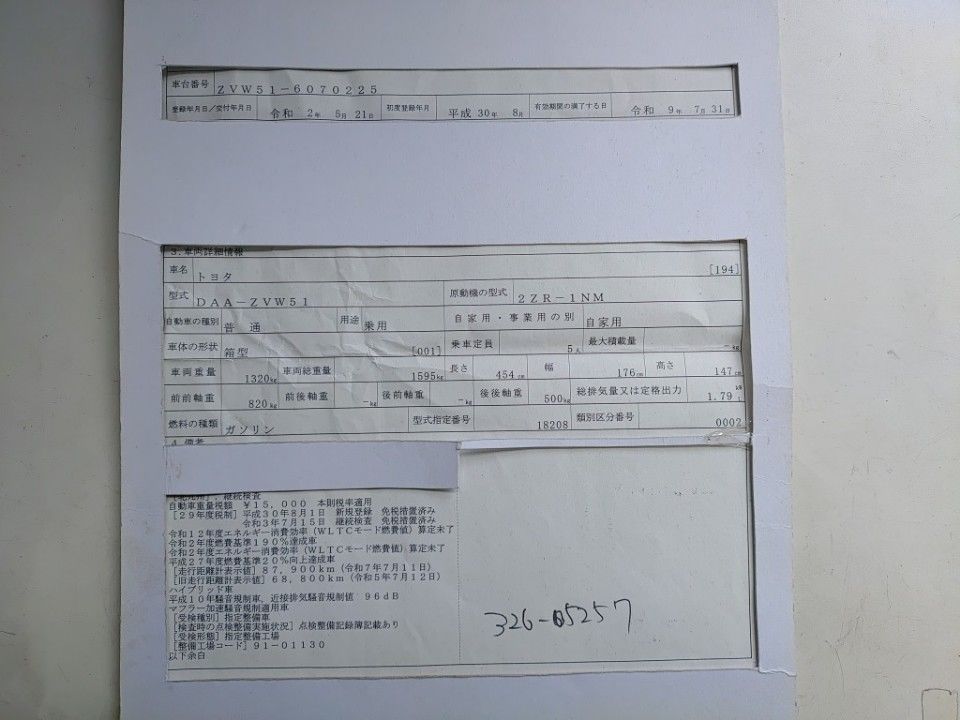 車台番号 ZVW51-6070225
登録年月日/交付年月日 令和 2年 5月 21日 初度登録年月 平成 30年 8月 有効期間の満了する日 令和 9年 7月 31日
3.車両詳細情報
車名 トヨタ [194]
型式 DAA-ZVW51 原動機の型式 2ZR-1NM
自動車の種別 普通 用途 乗用 自家用・事業用の別 自家用
車体の形状 箱型 [001] 乗車定員 5人 最大積載量 -kg
車両重量 1320kg 車両総重量 1595kg 長さ 454cm 幅 176cm 高さ 147cm
前前軸重 820kg 前後軸重 -kg 後前軸重 -kg 後後軸重 500kg 総排気量又は定格出力 1.79 kW
燃料の種類 ガソリン 型式指定番号 18208 類別区分番号 0002
4.備考
継続検査
自動車重量税額 ¥15,000 本則税率適用
[29年度税制] 平成30年8月1日 新規登録 免税措置済み
令和3年7月15日 継続検査 免税措置済み
令和12年度エネルギー消費効率(WLTCモード燃費値)算定未了
令和2年度燃費基準190%達成車
令和2年度エネルギー消費効率(WLTCモード燃費値)算定未了
平成27年度燃費基準20%向上達成車
[走行距離計表示値] 87,900km(令和7年7月11日)
[旧走行距離計表示値] 68,800km(令和5年7月12日)
ハイブリッド車
平成10年騒音規制車、近接排気騒音規制値 96dB
マフラー加速騒音規制適用車
[受検種別] 指定整備車
[検査時の点検整備実施状況] 点検整備記録簿記載あり
[受検形態] 指定整備工場
[整備工場コード] 91-01130
以下余白
326-05257